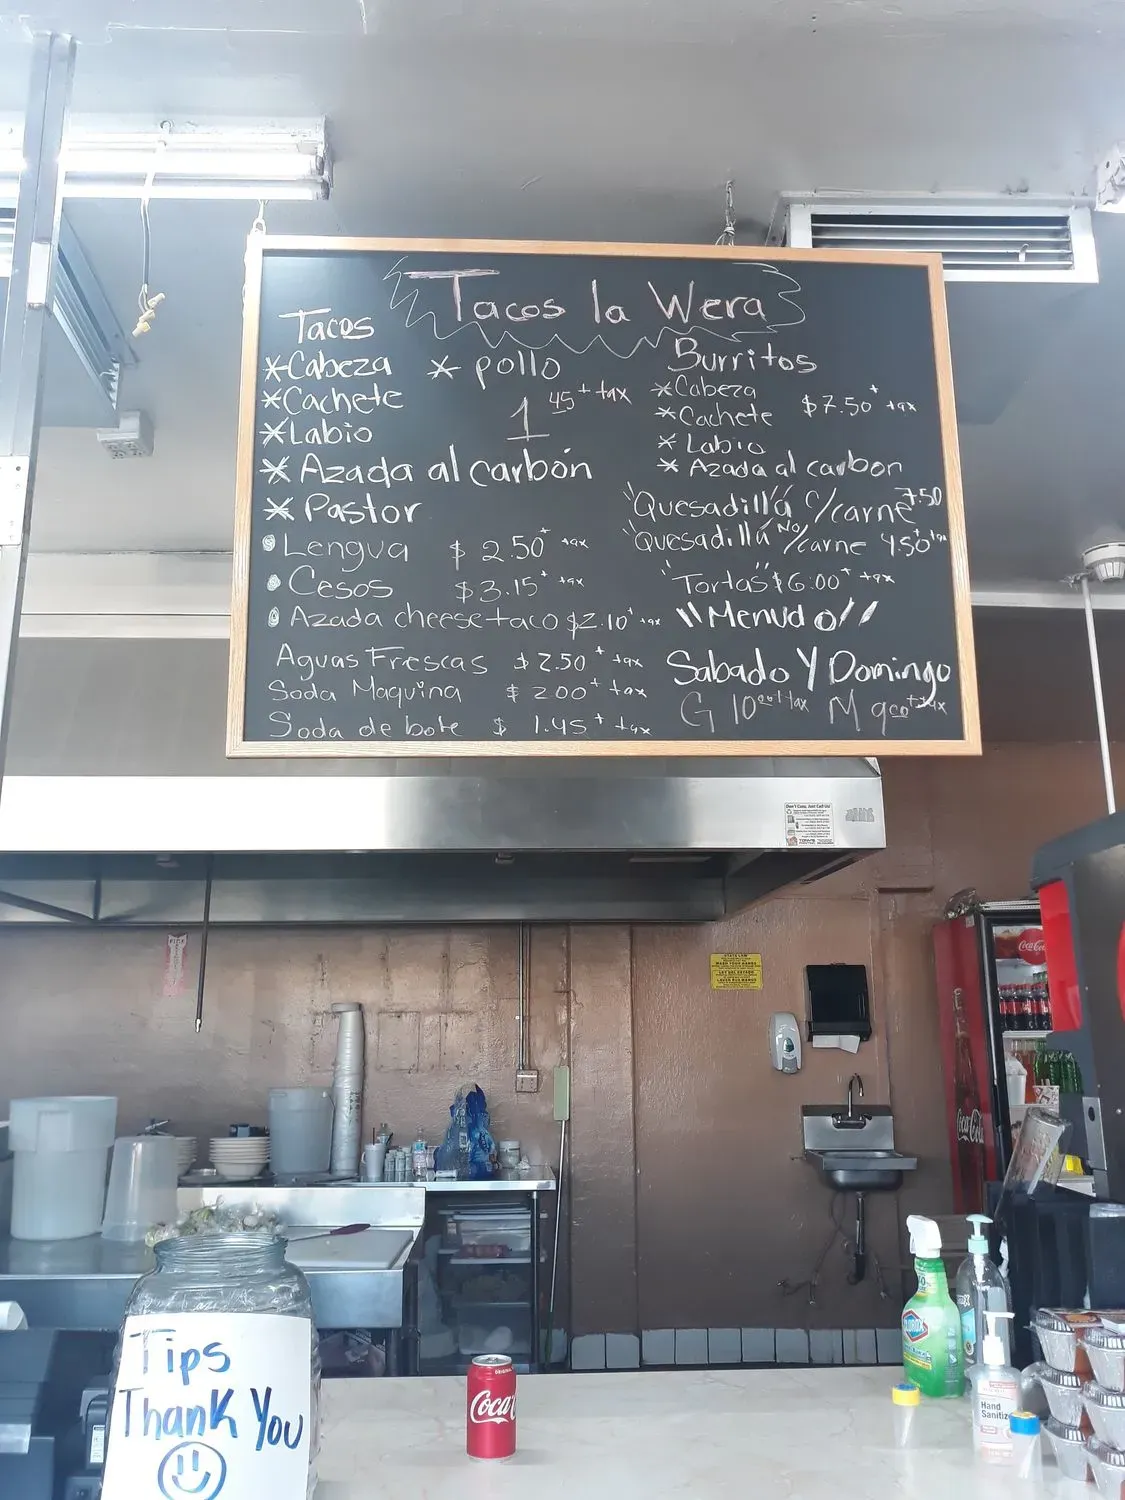 Tacos la Wera
Tacos
*Cabeza * pollo
*Cachete 1 45 + tax
*Labio
* Azada al carbón
* Pastor
Lengua $ 2.50 + tax
Cesos $3.15 + tax
Azada cheese taco $2.10 + tax
Aguas Frescas $2.50 + tax
Soda Maquina $ 200 + tax
Soda de bote $ 1.45 + tax
Burritos
*Cabeza
*Cachete $7.50 + tax
* Labio
* Azada al carbon
"Quesadilla" c/carne 7.50
"Quesadilla" No/carne 4.50 + tax
"Tortas" $6.00 + tax
"Menudo"
Sabado Y Domingo
G 10 00 + tax M 9 00 + tax
Don't Cuss, Just Call Us!
STATE LAW
WASH YOUR HANDS
Coca-Cola
Coca-Cola
Tips
Thank You
ORIGINAL
Coca
CLOROX
Hand
Sanitiz